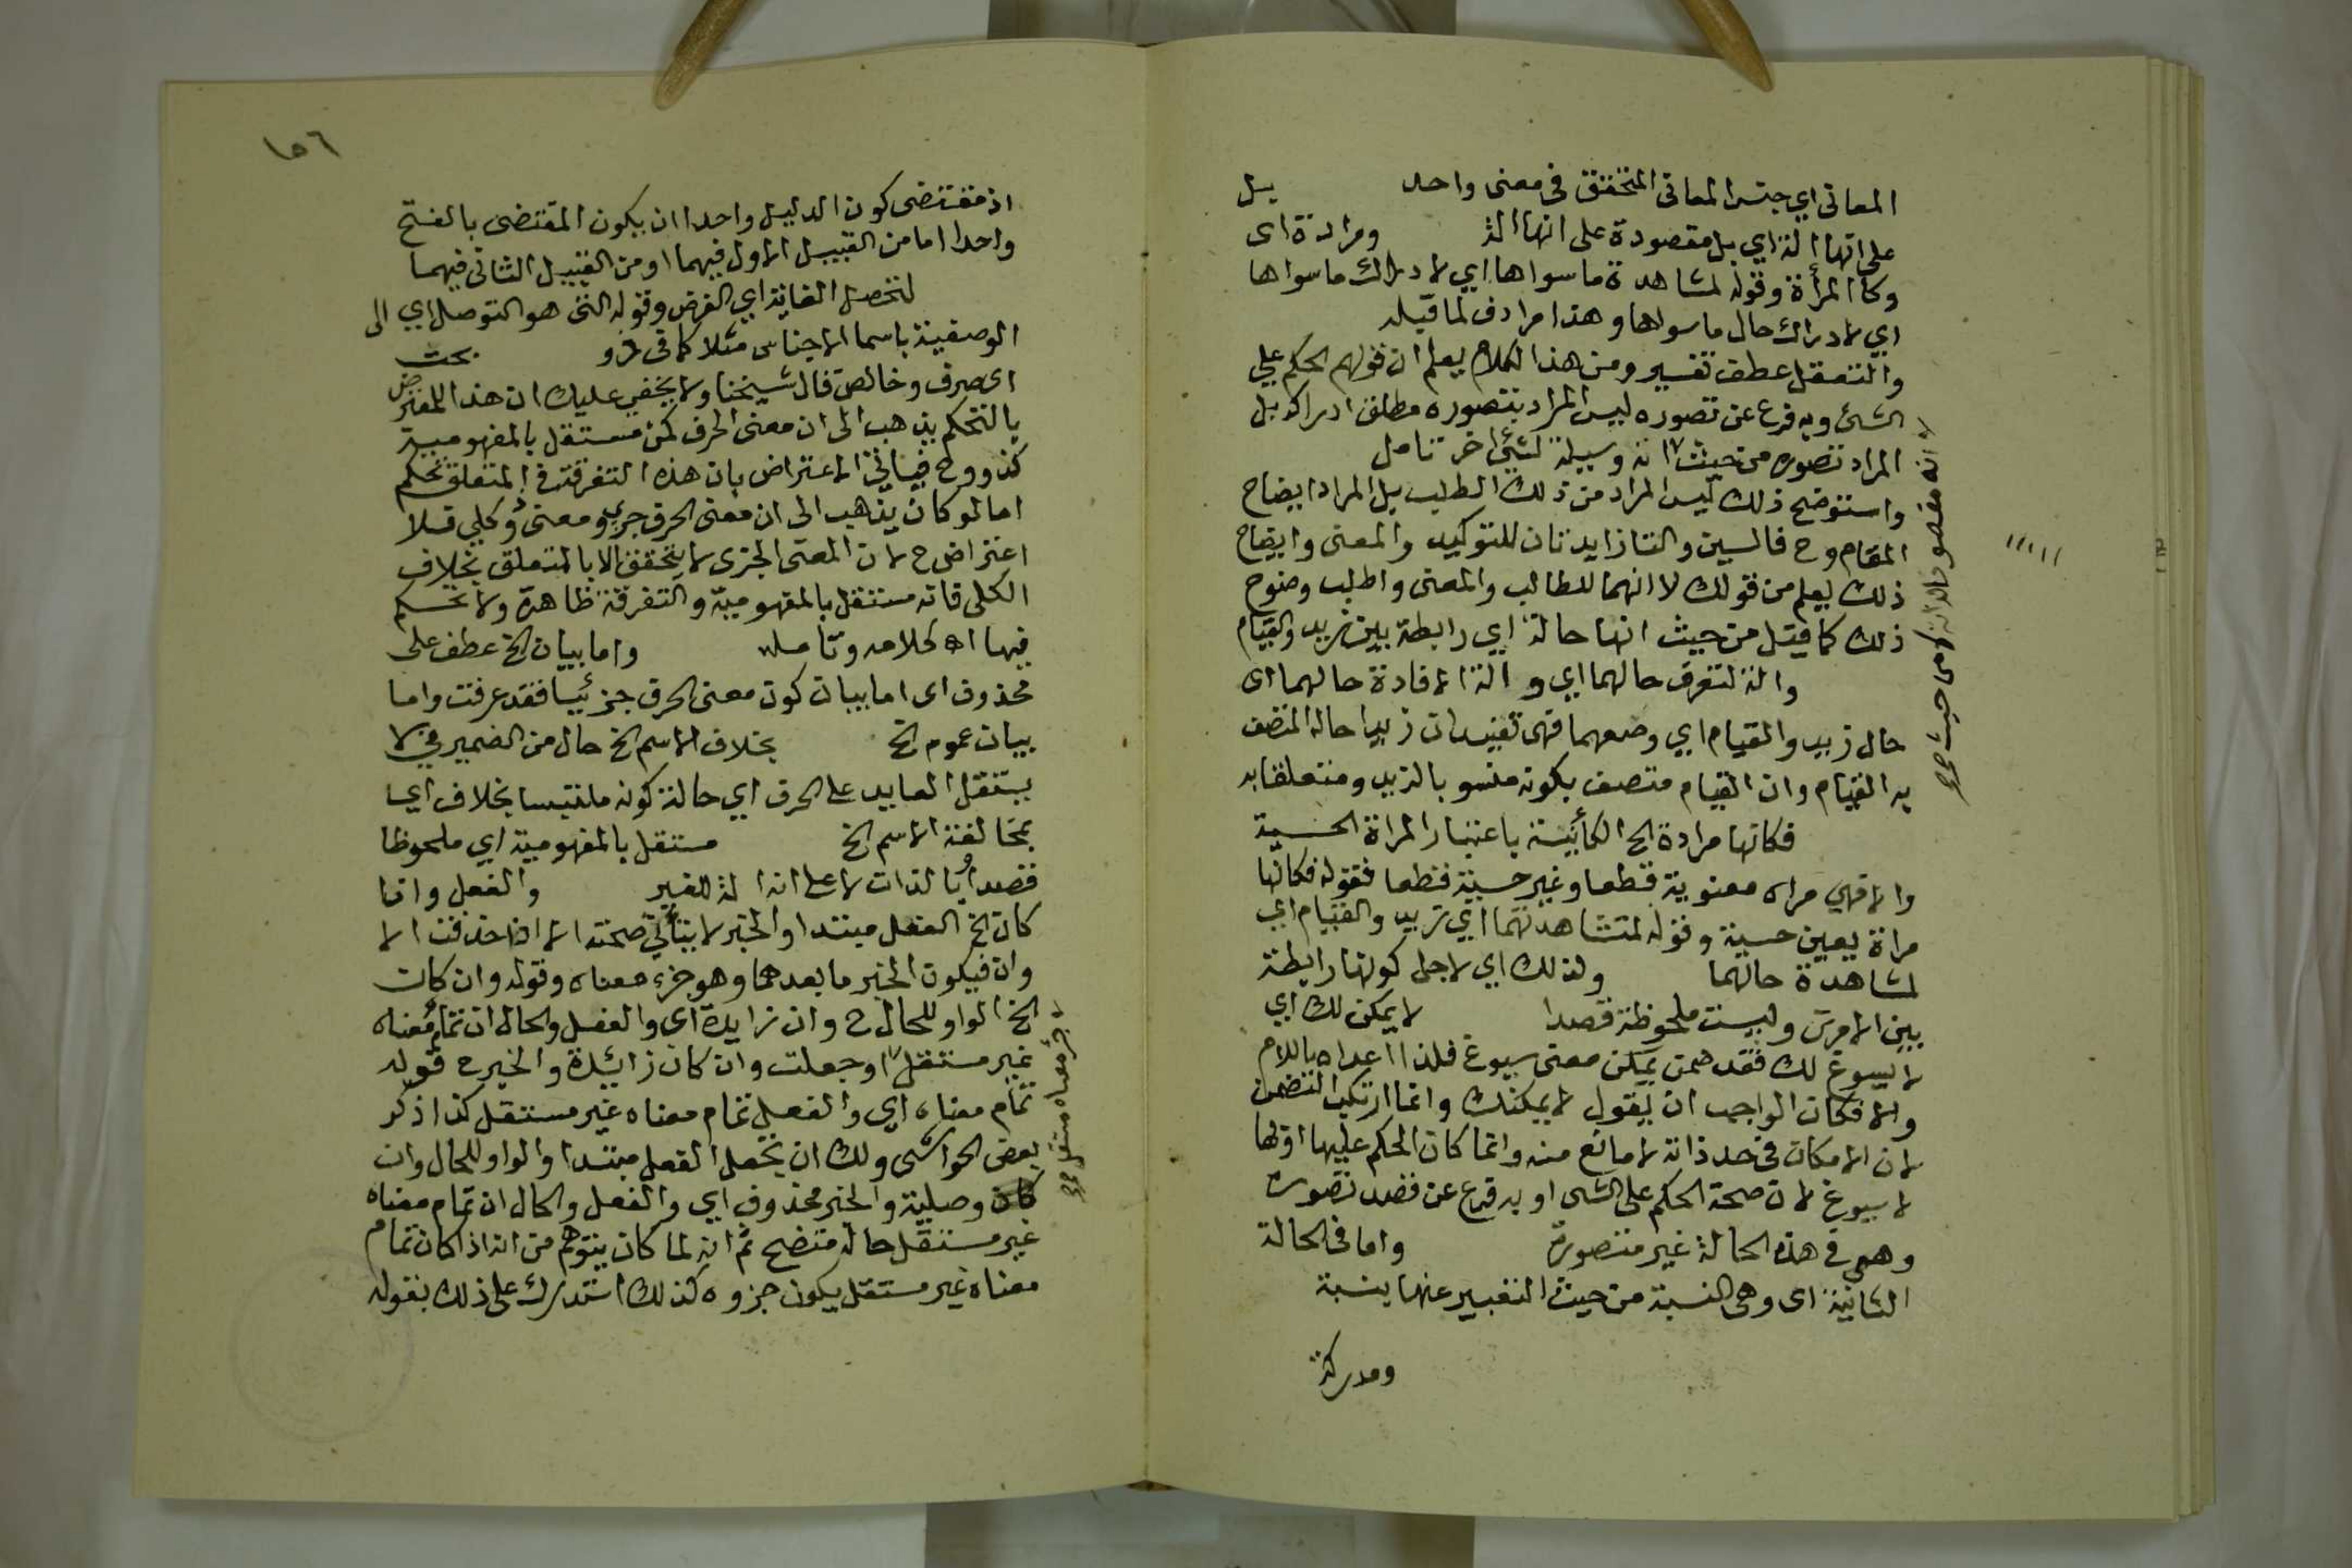 المعاني اي جنس المعاني المتحقق في معنى واحد بل
على انها الة اي بل مقصودة على انها الة ومراة اى
وكالمرأة وقوله لمشاهدة ما سواها اي لادراك ما سواها
اي لادراك حال ما سواها وهذا مرادف لما قبله
والتعقل عطف تفسير ومن هذا الكلام يعلم ان قولهم الحكم علي
الشئ وبه فرع عن تصوره ليس المراد بتصوره مطلق ادراكه بل
المراد تصوره من حيث انه وسيلة لشئ اخر تامل
واستوضح ذلك ليس المراد من ذلك الطلب بل المراد ايضاح
المقام وح فالسين والتا زايدتان للتوكيد والمعنى وايضاح
ذلك يعلم من قولك لا انهما للطالب والمعنى واطلب وضوح
ذلك كما قيل من حيث انها حالة اي رابطة بين زيد والقيام
والة لتعرف حالهما اي و الة لافادة حالهما اى
حال زيد والقيام اي وصفهما فهى تفيد ان زيدا حاله المتصف
به القيام وان القيام متصف بكونه منسوبا لزيد ومتعلقا به
فكانها مراة الخ الكائنة باعتبار المراة الحسية
والا فهي مراه معنوية قطعا وغير حسية قطعا فقوله فكانها
مراة يعين حسية وقوله لمشاهدتهما اي زيد والقيام اي
لمشاهدة حالهما ولذلك اي لاجل كونها رابطة
بين الامرين وليست ملحوظة قصدا لا يمكن لك اي
لا يسوغ لك فقد ضمن يمكن معنى يسوغ فلذا اعداه باللام
والا فكان الواجب ان يقول لا يمكنك وانما ارتكب التضمن
لان الامكان في حد ذاته لا مانع منه وانما كان الحكم عليها او بها
لا يسوغ لان صحة الحكم على الشى او به فرع عن قصد تصوره
وهى في هذه الحالة غير متصورة واما في الحالة
الثانية اى وهى النسبة من حيث التعبير عنها بنسبة
ومدركة
انه مقصود لذاته لا من حيث صح
١٥٦
اذ مقتضى كون الدليل واحدا ان يكون المقتضى بالفتح
واحدا اما من القبيل الاول فيهما او من القبيل الثاني فيهما
لتحصل الغاية اي الغرض وقوله التى هو التوصل اي الى
الوصفية باسما الاجناس مثلا كما في ذو بحت
اى صرف وخالص قال شيخنا ولا يخفي عليك ان هذا المعترض
بالتحكم يذهب الى ان معنى الحرف كمن مستقل بالمفهومية
كذو وح فياتي الاعتراض بان هذه التفرقة في المتعلق تحكم
اما لو كان يذهب الى ان معنى الحرف جزي ومعنى ذو كلي فلا
اعتراض ح لان المعنى الجزى لا يتحقق الا بالمتعلق بخلاف
الكلى فانه مستقل بالمفهومية والتفرقة ظاهرة ولا تحكم
فيها اه كلامه وتامله واما بيان الخ عطف على
محذوف اى اما بيان كون معنى الحرف جزئيا فقد عرفت واما
بيان عموم الخ بخلاف الاسم الخ حال من الضمير في لا
يستقل العايد على الحرف اي حالة كونه ملتبسا بخلاف اي
بمخالفة الاسم الخ مستقل بالمفهومية اي ملحوظا
قصدا بالذات لا على انه الة للغير والفعل وان
كان الخ الفعل مبتدا والخبر لا يتأتي صحته الا اذا حذفت الا
وان فيكون الخبر ما بعدهما وهو جزء معناه وقوله وان كان
الخ الواو للحال ح وان زايدة اى والفعل والحال ان تمام معناه
غير مستقل او جعلت وان كان زائدة والخبر ح قوله
تمام معناه اي والفعل تمام معناه غير مستقل كذا ذكر
بعض الحواشى ولك ان تجعل الفعل مبتدا والواو للحال وان
كان وصلية والخبر محذوف اي والفعل والحال ان تمام معناه
غير مستقل حاله متضح ثم انه لما كان يتوهم من انه اذا كان تمام
معناه غير مستقل يكون جزوه كذلك استدرك على ذلك بقوله
جزء معناه مستقل صح